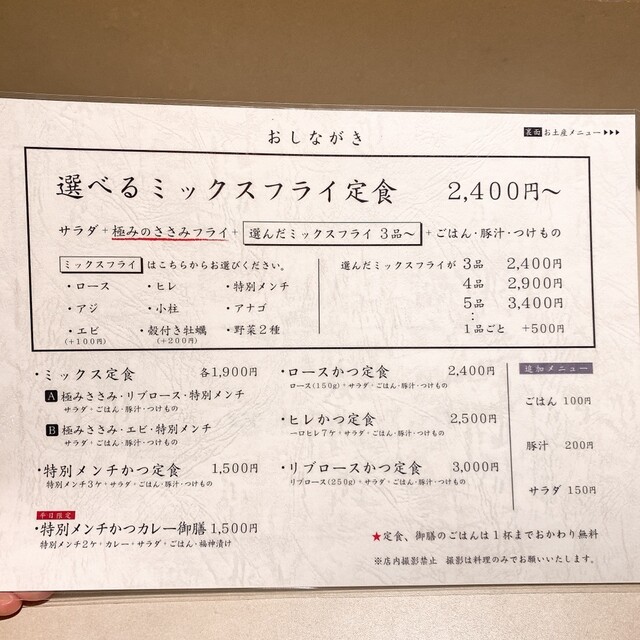 おしながき
裏面 お土産メニュー▶▶▶
選べるミックスフライ定食 2,400円～
サラダ+極みのささみフライ+選んだミックスフライ 3品～+ごはん・豚汁・つけもの
ミックスフライ はこちらからお選びください。
・ロース ・ヒレ ・特別メンチ
・アジ ・小柱 ・アナゴ
・エビ ・殻付き牡蠣 ・野菜2種
(+100円) (+200円)
選んだミックスフライが 3品 2,400円
4品 2,900円
5品 3,400円
：
1品ごと +500円
・ミックス定食 各1,900円
A 極みささみ・リブロース・特別メンチ
サラダ・ごはん・豚汁・つけもの
B 極みささみ・エビ・特別メンチ
サラダ・ごはん・豚汁・つけもの
・特別メンチかつ定食 1,500円
特別メンチ3ケ+サラダ・ごはん・豚汁・つけもの
平日限定
・特別メンチかつカレー御膳 1,500円
特別メンチ2ケ+カレー+サラダ・ごはん・福神漬け
・ロースかつ定食 2,400円
ロース(150g)+サラダ・ごはん・豚汁・つけもの
・ヒレかつ定食 2,500円
一口ヒレ7ケ+サラダ・ごはん・豚汁・つけもの
・リブロースかつ定食 3,000円
リブロース(250g)+サラダ・ごはん・豚汁・つけもの
追加メニュー
ごはん 100円
豚汁 200円
サラダ 150円
★定食、御膳のごはんは1杯までおかわり無料
※店内撮影禁止 撮影は料理のみでお願いいたします。